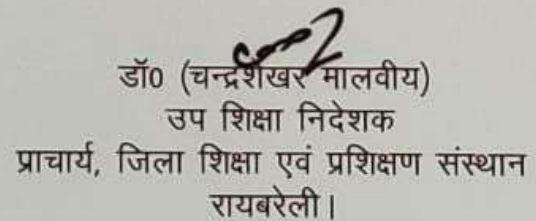 डॉ0 (चन्द्रशेखर मालवीय)
उप शिक्षा निदेशक
प्राचार्य, जिला शिक्षा एवं प्रशिक्षण संस्थान
रायबरेली।